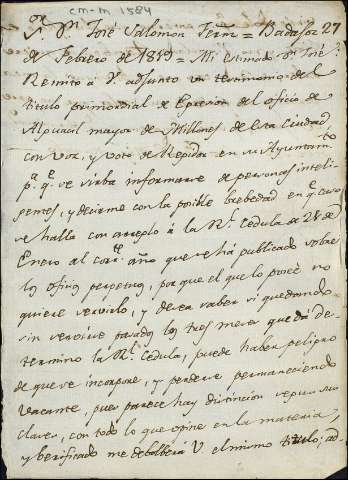 cm-m 1584
Sr. Dn. José Salomon = Badajoz 27
de Febrero de 1819 = Mi estimado Dn. José:
Remito a V. adjunto un testimonio del
titulo primordial de Egresion del oficio de
Alguacil mayor de Millones de esta Ciudad
con voz, y voto de Regidor en su Ayuntamto
pa. qe. se sirba informarse de personas inteli-
gentes, y decirme con la posible brebedad en qe. caso
se halla con arreglo á la Rl. Cedula de 28 de
Enero al corte. año que se há publicado sobre
los oficios perpetuos, por que el que lo poseé no
quiere servirlo, y desea saber si quedando-
sin servirse pasados los tres meses que dá de-
termino la Rl. Cedula, puede haber peligro
de que se incorpore, y perderse permaneciendo
vacante, pues parece hay distincion segun sus
clases, con todo lo que opine en la materia,
y berificado me debolberá V el mismo titulo; ad-